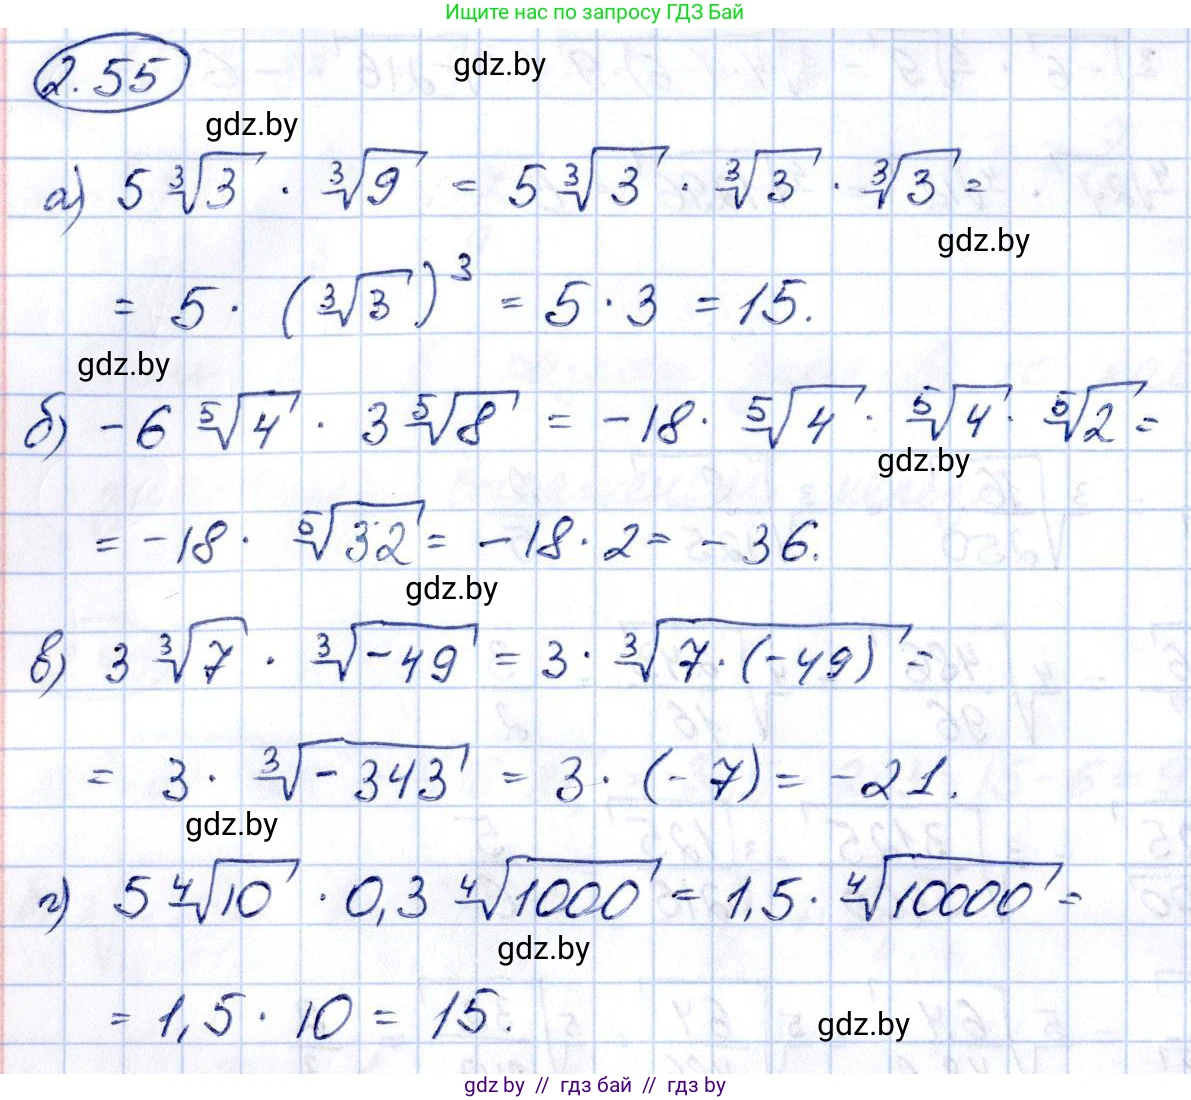 Ищите нас по запросу ГДЗ Бай
2.55
gdz.by
gdz.by
а) 5∛3 · ∛9 = 5∛3 · ∛3 · ∛3 =
gdz.by
= 5 · (∛3)³ = 5 · 3 = 15.
gdz.by
б) -6 ⁵√4 · 3 ⁵√8 = -18 · ⁵√4 · ⁵√4 · ⁵√2 =
gdz.by
= -18 · ⁵√32 = -18 · 2 = -36.
gdz.by
в) 3 ∛7 · ∛-49 = 3 · ∛7·(-49) =
= 3 · ∛-343 = 3 · (-7) = -21.
gdz.by
г) 5 ∜10 · 0,3 ∜1000 = 1,5 · ∜10000 =
gdz.by
= 1,5 · 10 = 15.
gdz.by
gdz by // гдз бай // гдз by